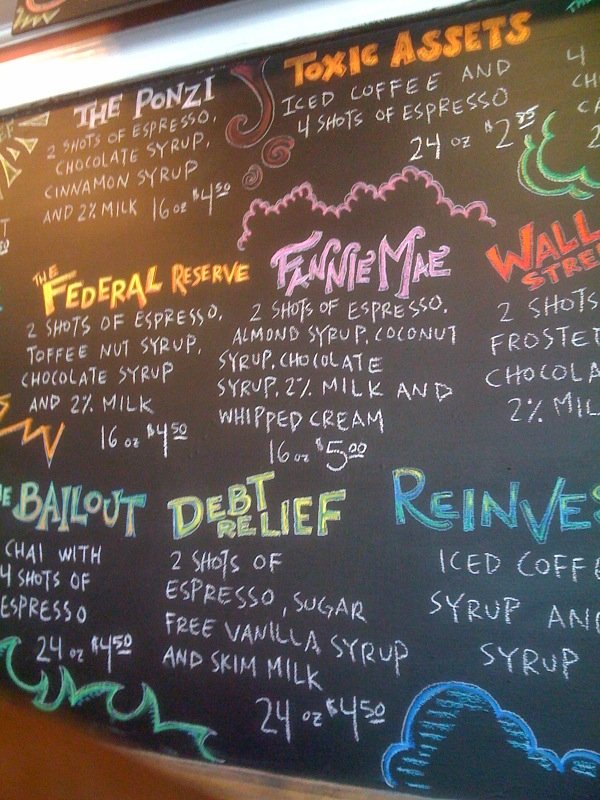 THE PONZI
2 SHOTS OF ESPRESSO,
CHOCOLATE SYRUP,
CINNAMON SYRUP
AND 2% MILK 16 oz $4.50
TOXIC ASSETS
ICED COFFEE AND
4 SHOTS OF ESPRESSO
24 oz $2.95
4
CH
CA
2
THE
FEDERAL RESERVE
2 SHOTS OF ESPRESSO,
TOFFEE NUT SYRUP,
CHOCOLATE SYRUP
AND 2% MILK
16 oz $4.50
FANNIE MAE
2 SHOTS OF ESPRESSO,
ALMOND SYRUP, COCONUT
SYRUP, CHOCOLATE
SYRUP, 2% MILK AND
WHIPPED CREAM
16 oz $5.00
WALL
STREE
2 SHOTS
FROSTE
CHOCOLA
2% MIL
HE BAILOUT
CHAI WITH
4 SHOTS OF
ESPRESSO
24 oz $4.50
DEBT
RELIEF
2 SHOTS OF
ESPRESSO, SUGAR
FREE VANILLA SYRUP
AND SKIM MILK
24 oz $4.50
REINVES
ICED COFFE
SYRUP AN
SYRUP